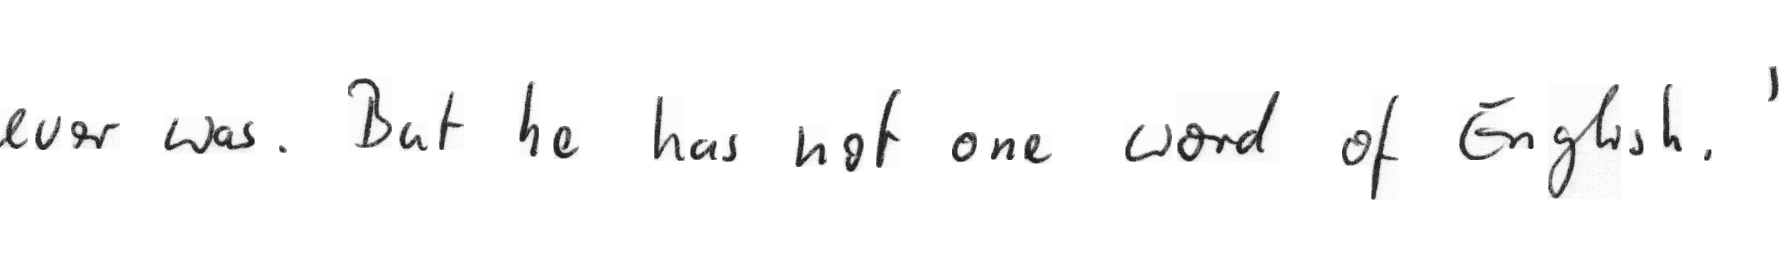 ever was. But he has not one word of English. '